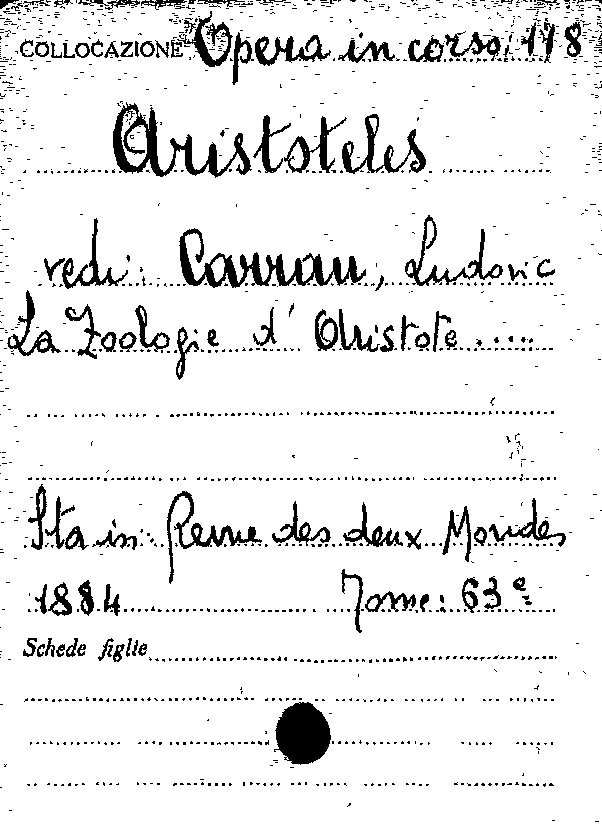 COLLOCAZIONE Opera in corso. 118
Aristoteles
vedi: Carrau, Ludovic
La Zoologie d' Aristote.....
Sta in: Revue des deux Mondes
1884 Tome: 63e
Schede figlie